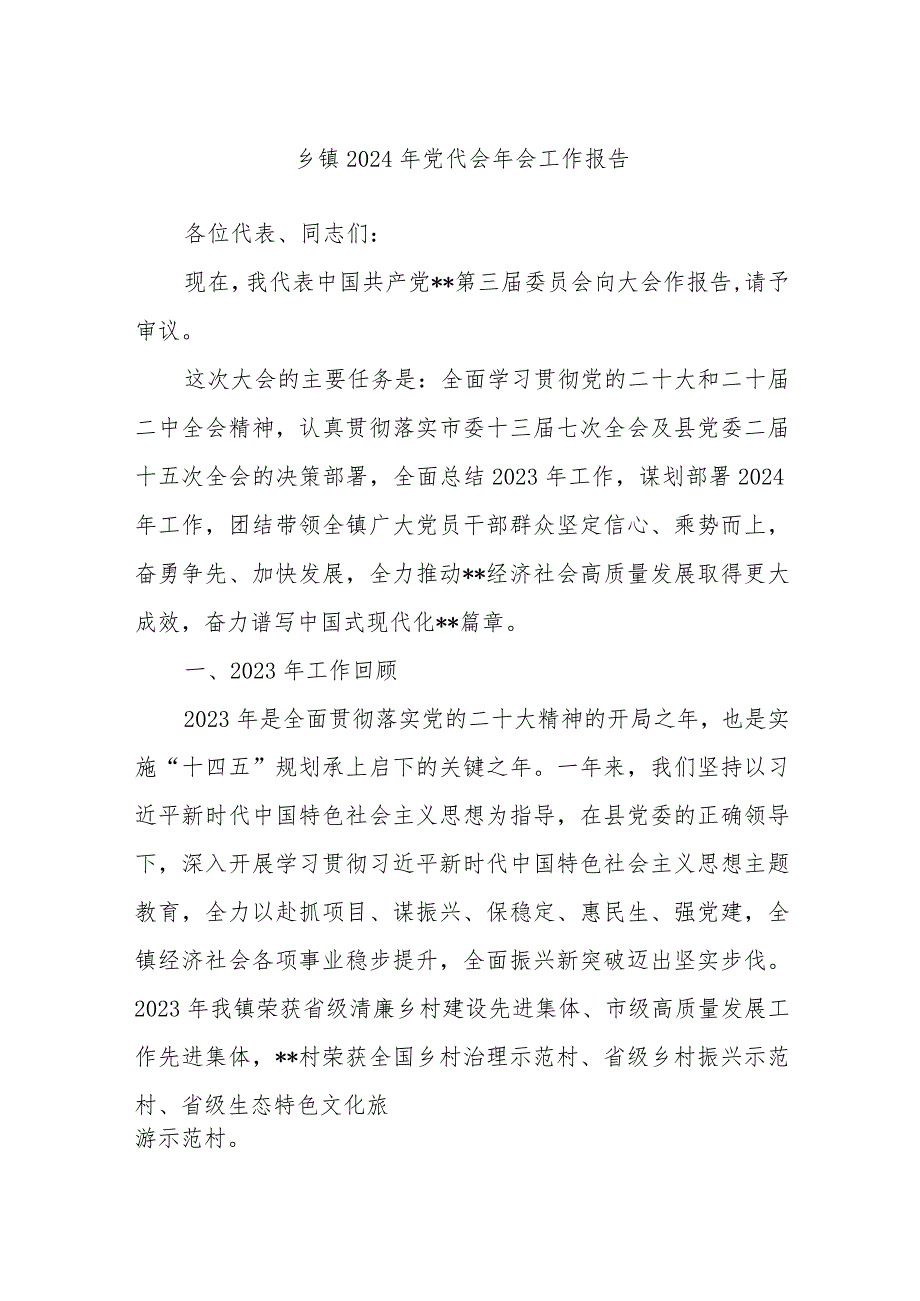 乡镇 2024 年党代会年会工作报告
各位代表、同志们：
现在，我代表中国共产党**第三届委员会向大会作报告,请予
审议。
这次大会的主要任务是：全面学习贯彻党的二十大和二十届
二中全会精神，认真贯彻落实市委十三届七次全会及县党委二届
十五次全会的决策部署，全面总结 2023 年工作，谋划部署 2024
年工作，团结带领全镇广大党员干部群众坚定信心、乘势而上，
奋勇争先、加快发展，全力推动**经济社会高质量发展取得更大
成效，奋力谱写中国式现代化**篇章。
一、2023 年工作回顾
2023 年是全面贯彻落实党的二十大精神的开局之年，也是实
施“十四五”规划承上启下的关键之年。一年来，我们坚持以习
近平新时代中国特色社会主义思想为指导，在县党委的正确领导
下，深入开展学习贯彻习近平新时代中国特色社会主义思想主题
教育，全力以赴抓项目、谋振兴、保稳定、惠民生、强党建，全
镇经济社会各项事业稳步提升，全面振兴新突破迈出坚实步伐。
2023 年我镇荣获省级清廉乡村建设先进集体、市级高质量发展工
作先进集体，**村荣获全国乡村治理示范村、省级乡村振兴示范
村、省级生态特色文化旅
游示范村。